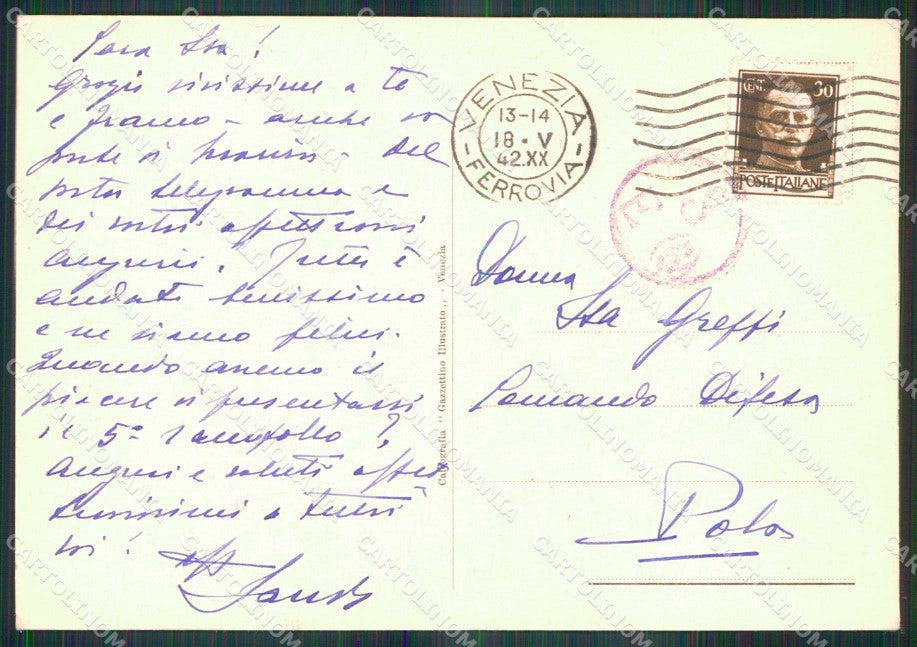 Cara Isa!
Grazie vivissime a te
e Franco - anche da
parte di - del
vostro telegramma e
dei vostri affettuosi
auguri. Tutto è
andato benissimo
e ne siamo felici.
Quando avremo il
piacere di presentarvi
il 5° rampollo?
Auguri e saluti affet
tuosissimi a tutti
voi!
aff
VENEZIA
13-14
18 · V
42.XX
- FERROVIA -
CENT. 30
POSTE ITALIANE
Donna
Isa Greffi
Comando Difesa
Pola
Cartografia "Gazzettino Illustrato„ - Venezia
CARTOLINOMANIA